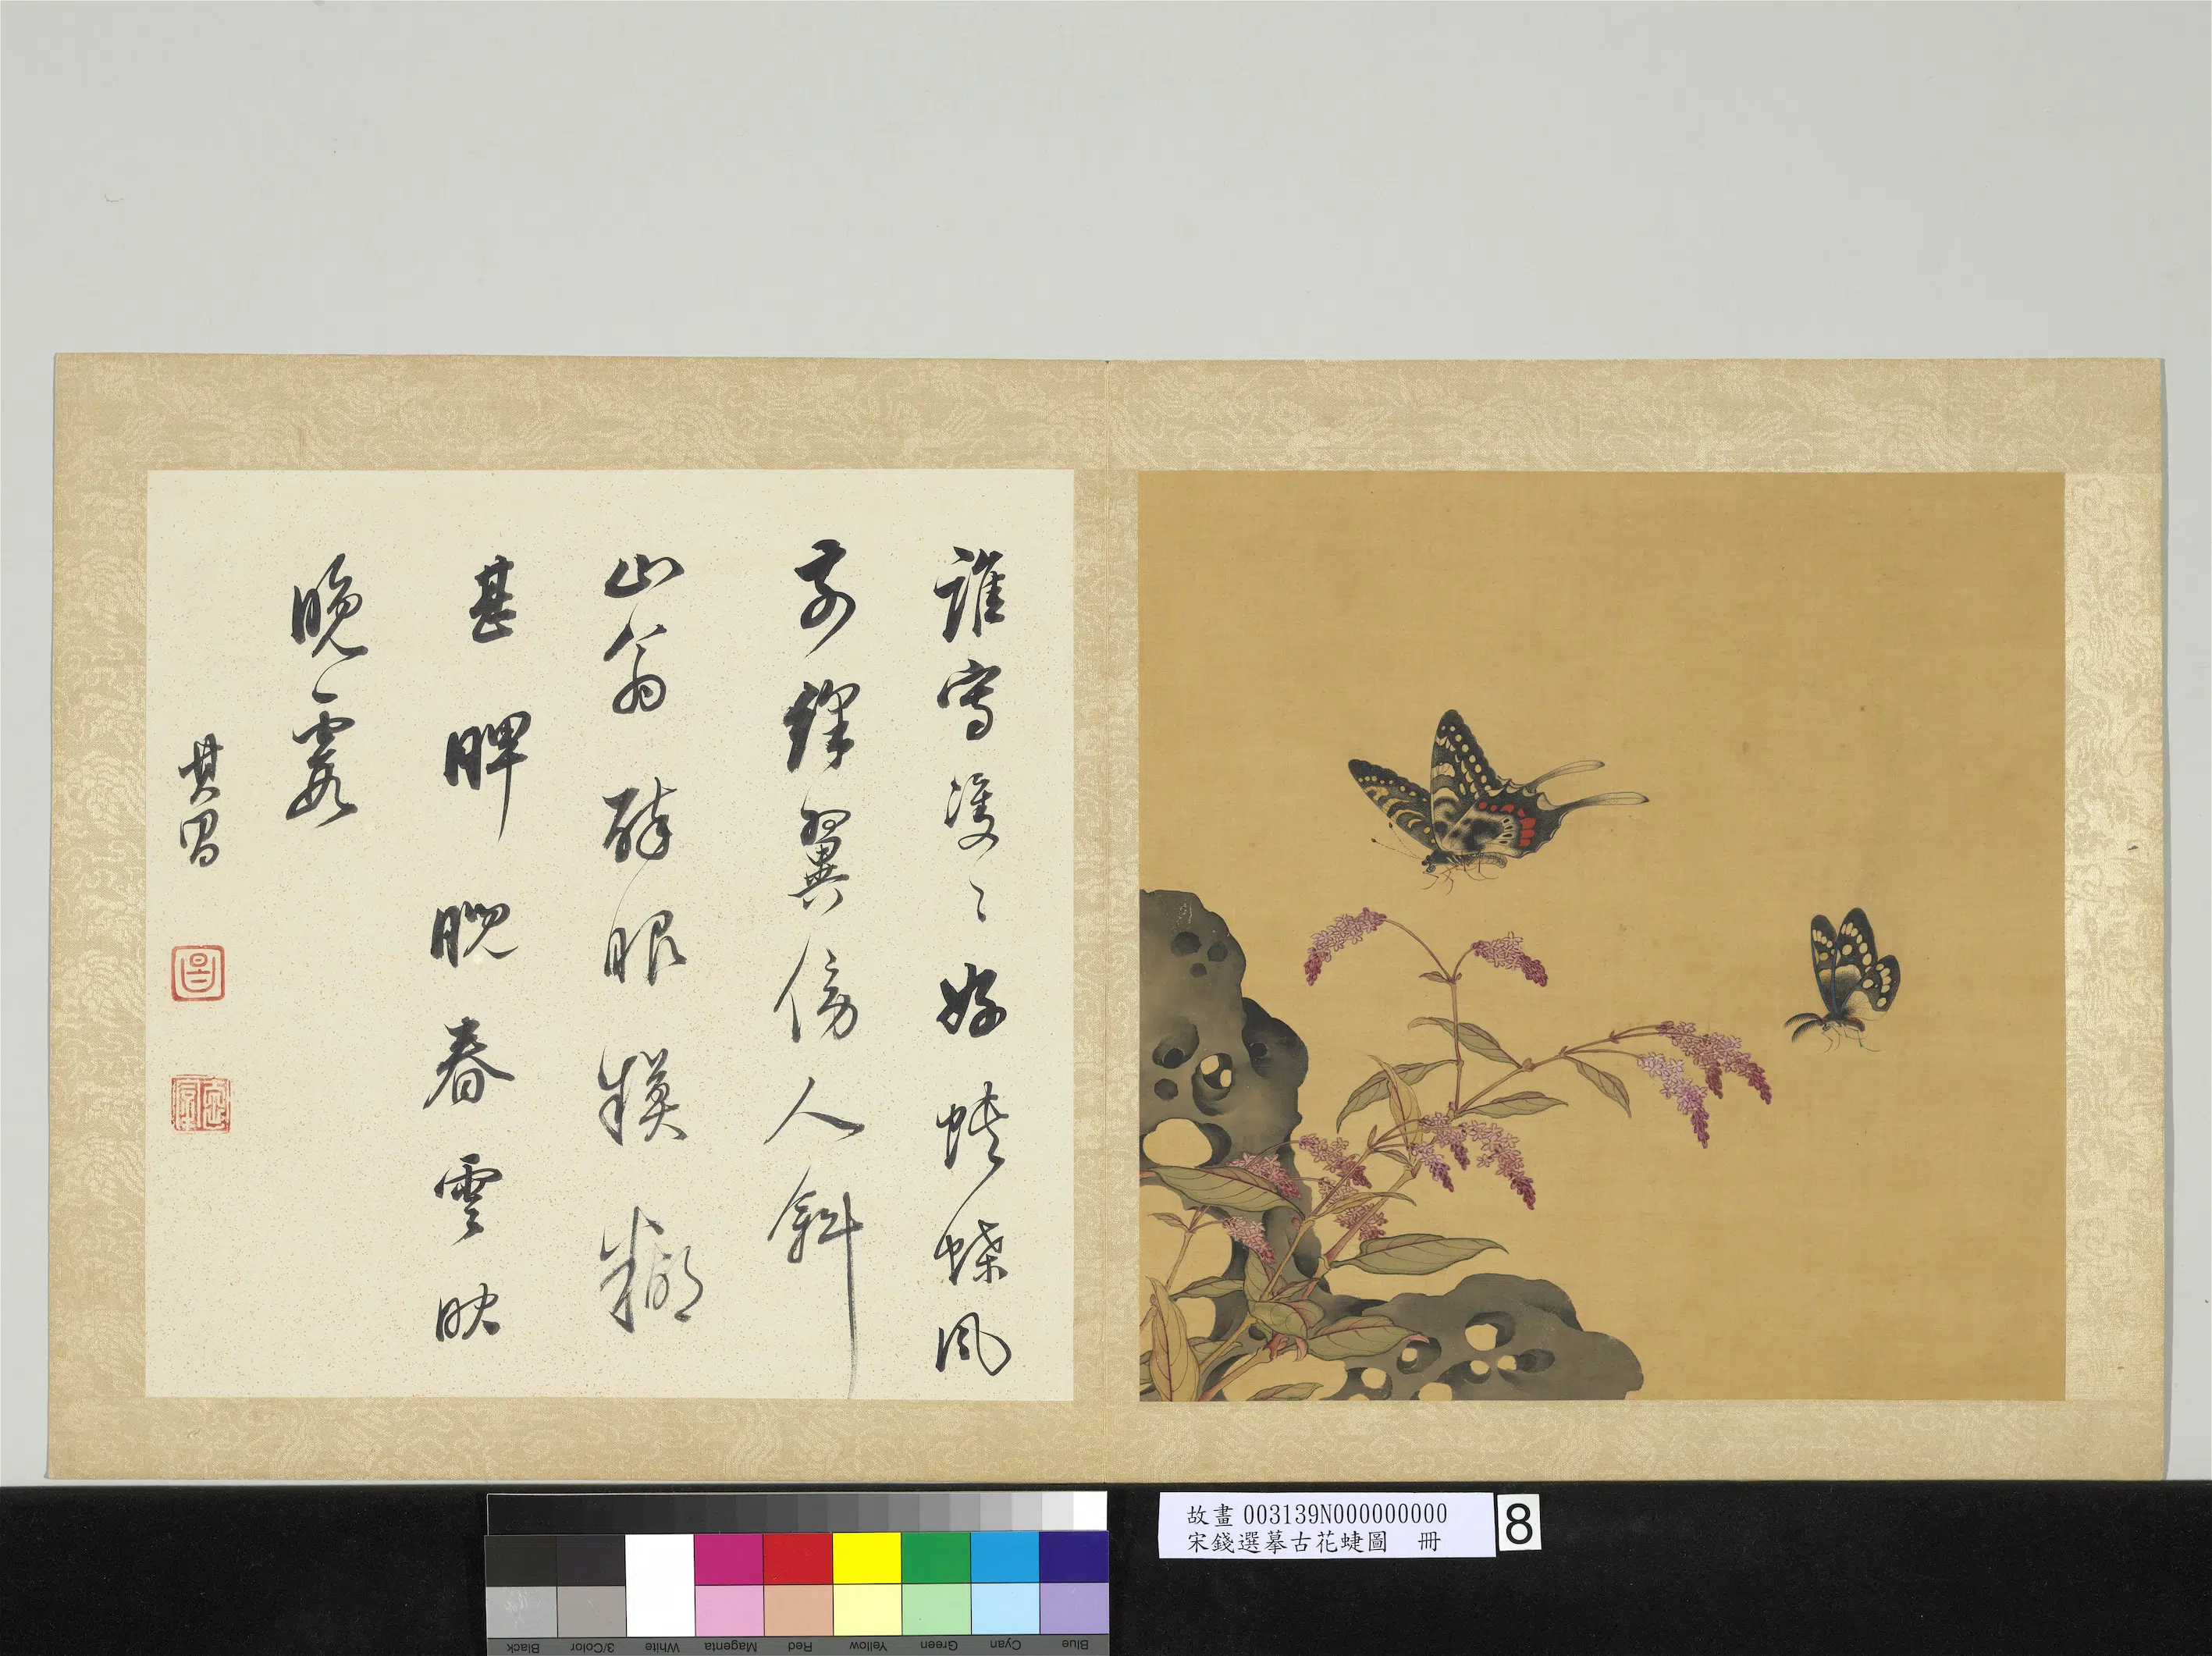 誰寫雙〻好蛺蝶風
前翼傍人斜
山翁醉眼糢糊
甚睥睨春雲映
晚霞
其昌
故畫 003139N000000000
宋錢選摹古花蜨圖 冊
8
Blue Cyan Green Yellow Red Magenta White 3/Color Black